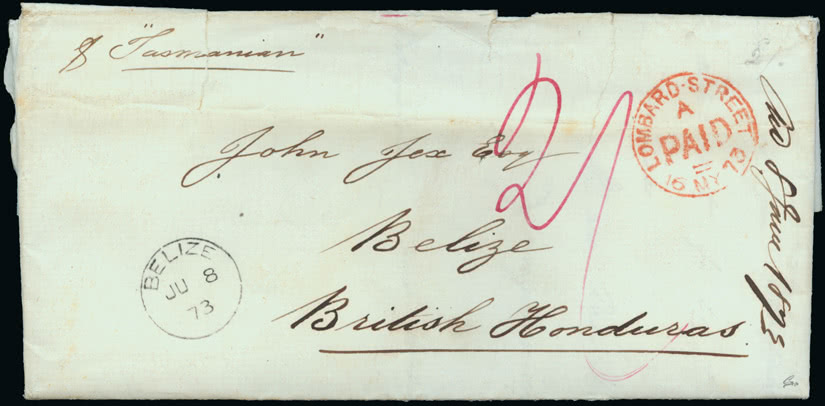 "Tasmanian"
2/
LOMBARD-STREET
A
PAID
16 MY 73
John Jex Esq
Belize
British Honduras
BELIZE
JU 8
73
8 June 1873